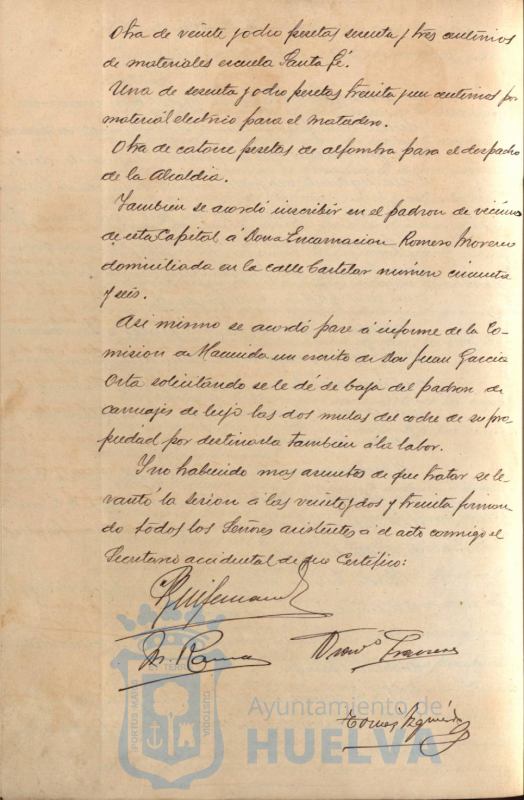 Otra de veinte y ocho pesetas sesenta y tres centimos
de materiales escuela Santa Fé.
Una de sesenta y ocho pesetas treinta y un centimos por
material electrico para el matadero.
Otra de catorce pesetas de alfombra para el despacho
de la Alcaldia.
Tambien se acordó inscribir en el padron de vecinos
de esta Capital á Dona Encarnacion Romero Moreno
domiciliada en la calle Castelar número cincuenta
y seis.
Asi mismo se acordó pase á informe de la Co-
mision de Hacienda un escrito de Don Juan Garcia
Orta solicitando se le dé de baja del padron de
carruajes de lujo las dos mulas del coche de su pro-
piedad por destinarla tambien á la labor.
Y no habiendo mas asuntos de que tratar se le-
vantó la sesion á las veinte y dos y treinta firman-
do todos los Señores asistentes á el acto conmigo el
Secretario accidental de que Certifico:
PORTUS MARIS
ET TERRAE
CUSTODIA
Ayuntamiento de
HUELVA